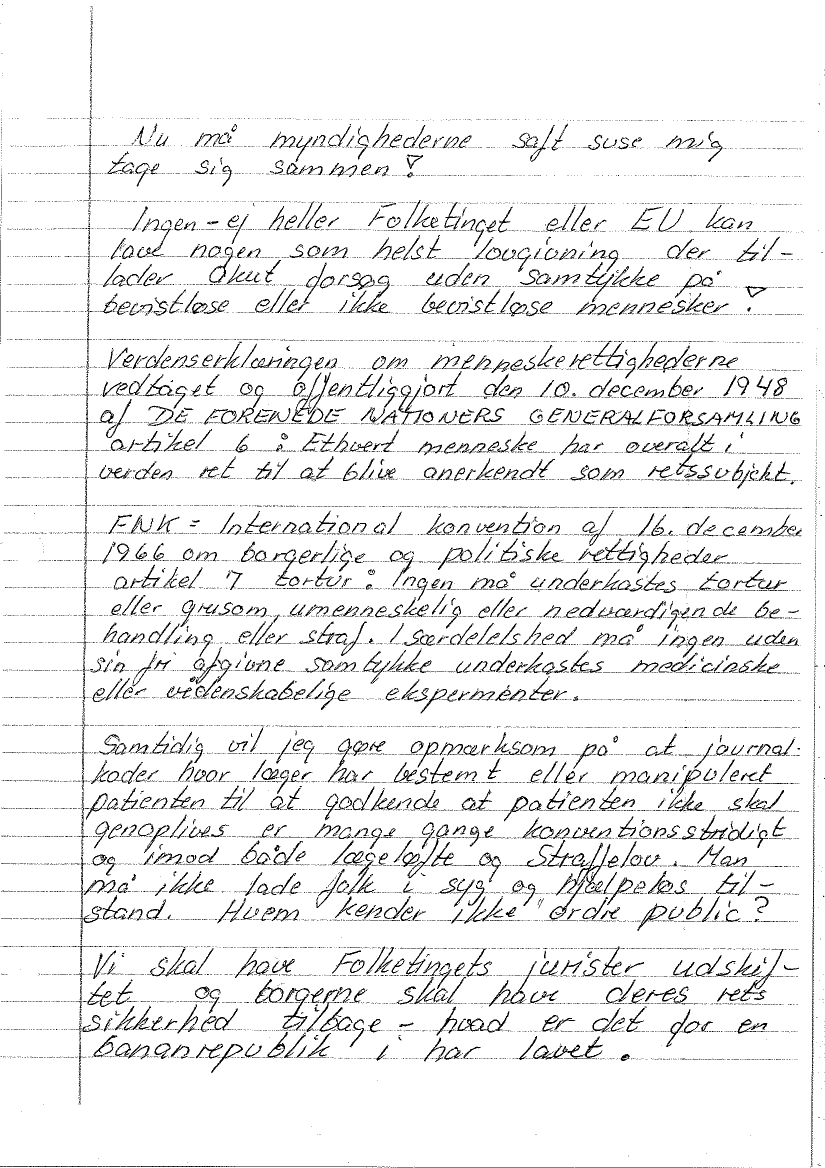 Nu må myndighederne saft suse mig
tage sig sammen!
Ingen - ej heller Folketinget eller EU kan
lave nogen som helst lovgivning der til-
lader Akut forsøg uden samtykke på
bevistløse eller ikke bevistløse mennesker!
Verdenserklæringen om menneskerettighederne
vedtaget og offentliggjort den 10. december 1948
af DE FORENEDE NATIONERS GENERALFORSAMLING
artikel 6 : Ethvert menneske har overalt i
verden ret til at blive anerkendt som retssubjekt.
FNK = International konvention af 16. december
1966 om borgerlige og politiske rettigheder
artikel 7 tortur : Ingen må underkastes tortur
eller grusom, umenneskelig eller nedværdigende be-
handling eller straf. I særdelelshed må ingen uden
sin fri afgivne samtykke underkastes medicinske
eller videnskabelige ekspermenter.
Samtidig vil jeg gøre opmærksom på at journal-
koder hvor læger har bestemt eller manipuleret
patienten til at godkende at patienten ikke skal
genoplives er mange gange konventionsstridigt
og imod både lægeløfte og Straffelov. Man
må ikke lade folk i syg og hjælpeløs til-
stand. Hvem kender ikke "ordre public?
Vi skal have Folketingets jurister udskif-
tet og borgerne skal have deres rets
sikkerhed tilbage - hvad er det for en
bananrepublik i har lavet.